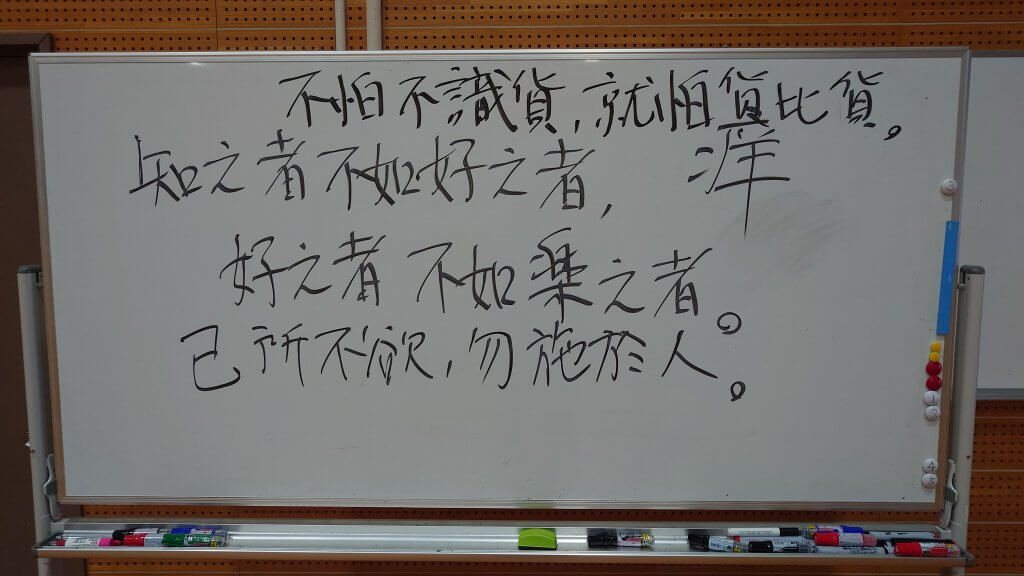 不怕不識貨,就怕貨比貨。
知之者不如好之者,
好之者不如楽之者。
己所不欲,勿施於人。